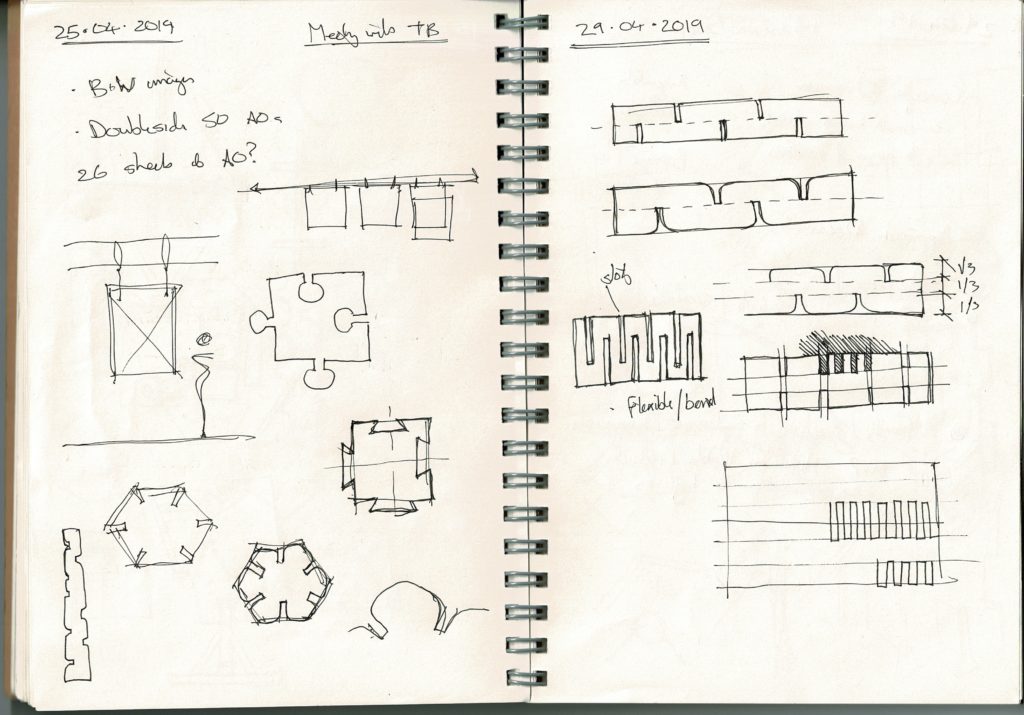 25.04.2019
Meeting with TB
· B&W images
· Doubleside SO AO
26 sheets of AO?
29.04.2019
1/3
1/3
1/3
slots
· Flexible/bend